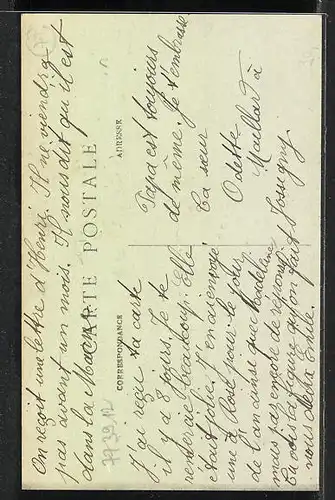 On reçoit une lettre d'Henri. Il ne viendra
pas avant un mois. Il nous dit qu'il est
dans la
CARTE POSTALE
CORRESPONDANCE
ADRESSE
J'ai reçu ta carte
il y a 8 jours. Je te
remercie beaucoup. Elle
était jolie. J'en ai envoyé
une à Rose pour le jour
de l'an ainsi que Madeleine
mais pas encore de réponse.
nous
Papa est toujours
de même. Je t'embrasse
Ta sœur
Odette
Maillard à
Jossigny